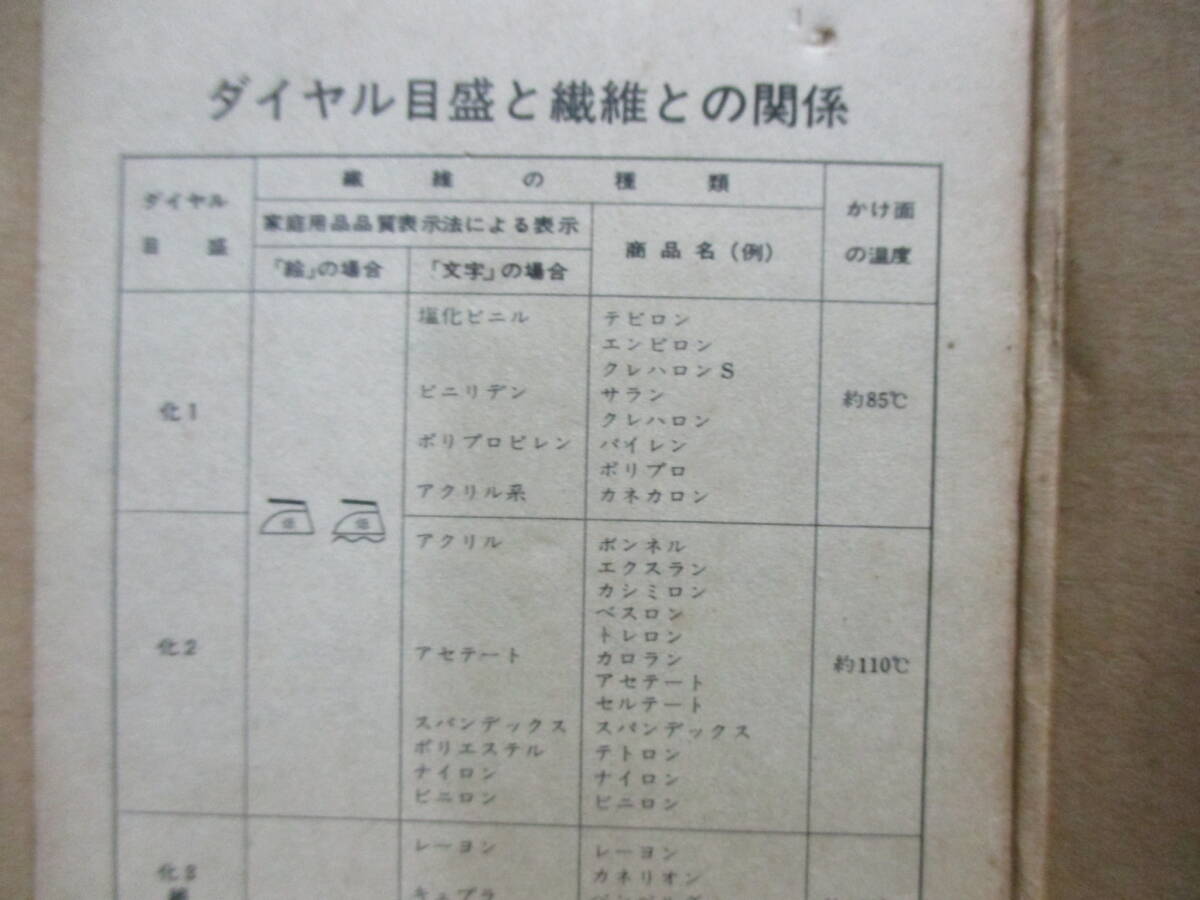 ダイヤル目盛と繊維との関係
ダイヤル
目盛
繊維の種類
家庭用品品質表示法による表示
「絵」の場合
「文字」の場合
商品名(例)
かけ面
の温度
化1
塩化ビニル
テビロン
エンビロン
クレハロンS
ビニリデン
サラン
クレハロン
ポリプロピレン
パイレン
ポリプロ
アクリル系
カネカロン
約85℃
低
低
化2
アクリル
ボンネル
エクスラン
カシミロン
ベスロン
トレロン
アセテート
カロラン
アセテート
セルテート
スパンデックス
スパンデックス
ポリエステル
テトロン
ナイロン
ナイロン
ビニロン
ビニロン
約110℃
化3
レーヨン
レーヨン
カネリオン
キュプラ